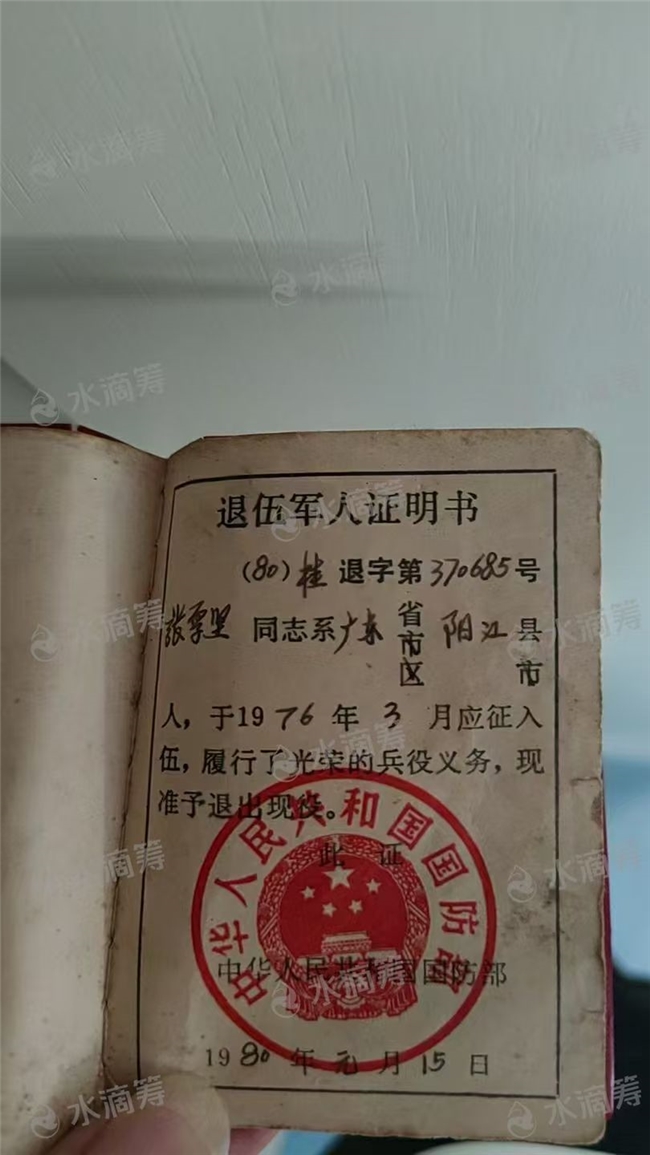 退伍军人证明书
(80)桂退字第370685号
同志系广东省市区阳江县市
人，于1976年3月应征入
伍，履行了光荣的兵役义务，现
准予退出现役。
此证
中华人民共和国国防部
中华人民共和国国防部
1980年元月15日
水滴筹
水滴筹
水滴筹
水滴筹
水滴筹
水滴筹
水滴筹
水滴筹
水滴筹
水滴筹
水滴筹
水滴筹